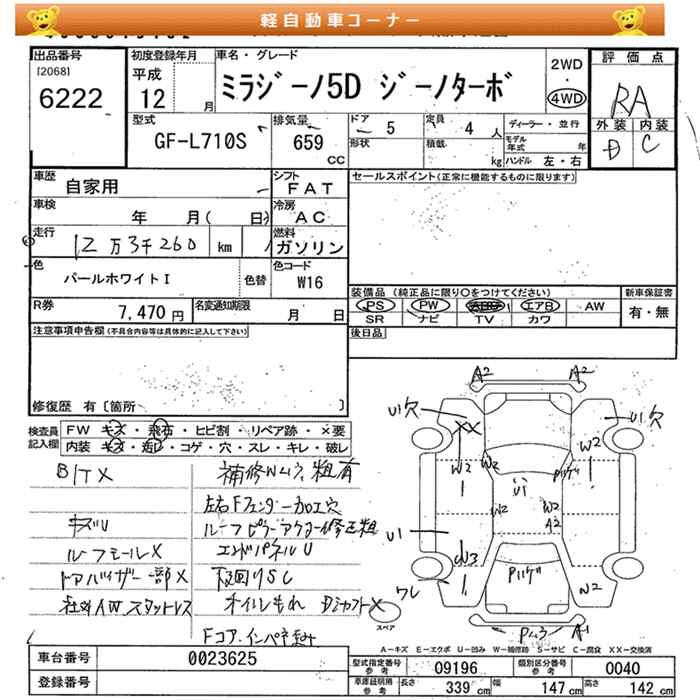 軽自動車コーナー
出品番号 初度登録年月 車名・グレード 2WD 評価点
[2068] 平成 ミラジーノ5D ジーノターボ ・
6222 12 月 4WD RA
型式 排気量 ドア 5 定員 4 人 ディーラー・並行 外装 内装
GF-L710S 659 cc 形状 積載 kg モデル年式 年 D C
ハンドル 左・右
車歴 自家用 シフト FAT セールスポイント(正常に機能するものに限ります)
車検 年 月( 日) 冷房 AC
走行 12万3千260 km 燃料 ガソリン
色 パールホワイトI 色替 色コード W16
装備品(純正品に限り○をつけてください) 新車保証書
R券 7,470円 名変通知期限 月 日 PS PW エアB AW 有・無
SR ナビ TV カワ
注意事項申告欄(不具合内容等は具体的に記入して下さい) 後日品
修復歴 有[箇所 ]
検査員記入欄 FW キズ・飛石・ヒビ割・リペア跡・×要
内装 キズ・汚レ・コゲ・穴・スレ・キレ・破レ
B/TX 補修Wムラ、粗有
左右Fフェンダー加工穴
キズU
ルーフモールX エンドパネルU
ドアバイザー一部X 下回りSC
社外AWスタッドレス オイルもれ DシャフトX
Fコア、インパネ歪み
A2 A2
U1欠 U1欠
XX W2
W2 W2 Pハゲ
U1 W2
U1 A2
W3 W2
Pハゲ
ワレ
スペア Pムラ A1
A-キズ E-エクボ U-凹み W-補修跡 S-サビ C-腐食 XX-交換済
車台番号 0023625 型式指定番号 参考 09196 類別区分番号 参考 0040
登録番号 車庫証明用 参考 長さ 339 cm 幅 147 cm 高さ 142 cm